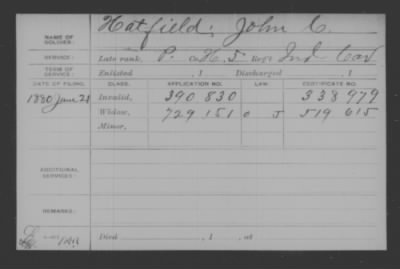 NAME OF SOLDIER: Hatfield, John C.
SERVICE: Late rank, P. Co. H, 5 Reg't Ind Cav
TERM OF SERVICE: Enlisted , 1 Discharged , 1
DATE OF FILING. CLASS. APPLICATION NO. LAW. CERTIFICATE NO.
1880 June 21 Invalid, 390 830 338 979
Widow, 729 151 0 J 519 615
Minor,
ADDITIONAL SERVICES:
REMARKS:
Died , 1 , at